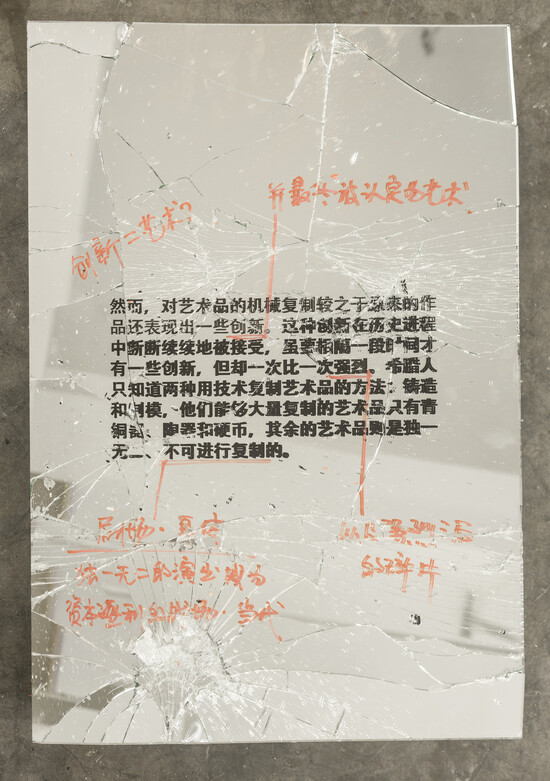 并最终"被认定为艺术"
创新=艺术?
然而,对艺术品的机械复制较之于原来的作
品还表现出一些创新。这种创新在历史进程
中断断续续地被接受,虽要相隔一段时间才
有一些创新,但却一次比一次强烈。希腊人
只知道两种用技术复制艺术品的方法:铸造
和制模,他们能够大量复制的艺术品只有青
铜器、陶器和硬币,其余的艺术品则是独一
无二、不可进行复制的。
独一无二的演出成为
资本逐利的